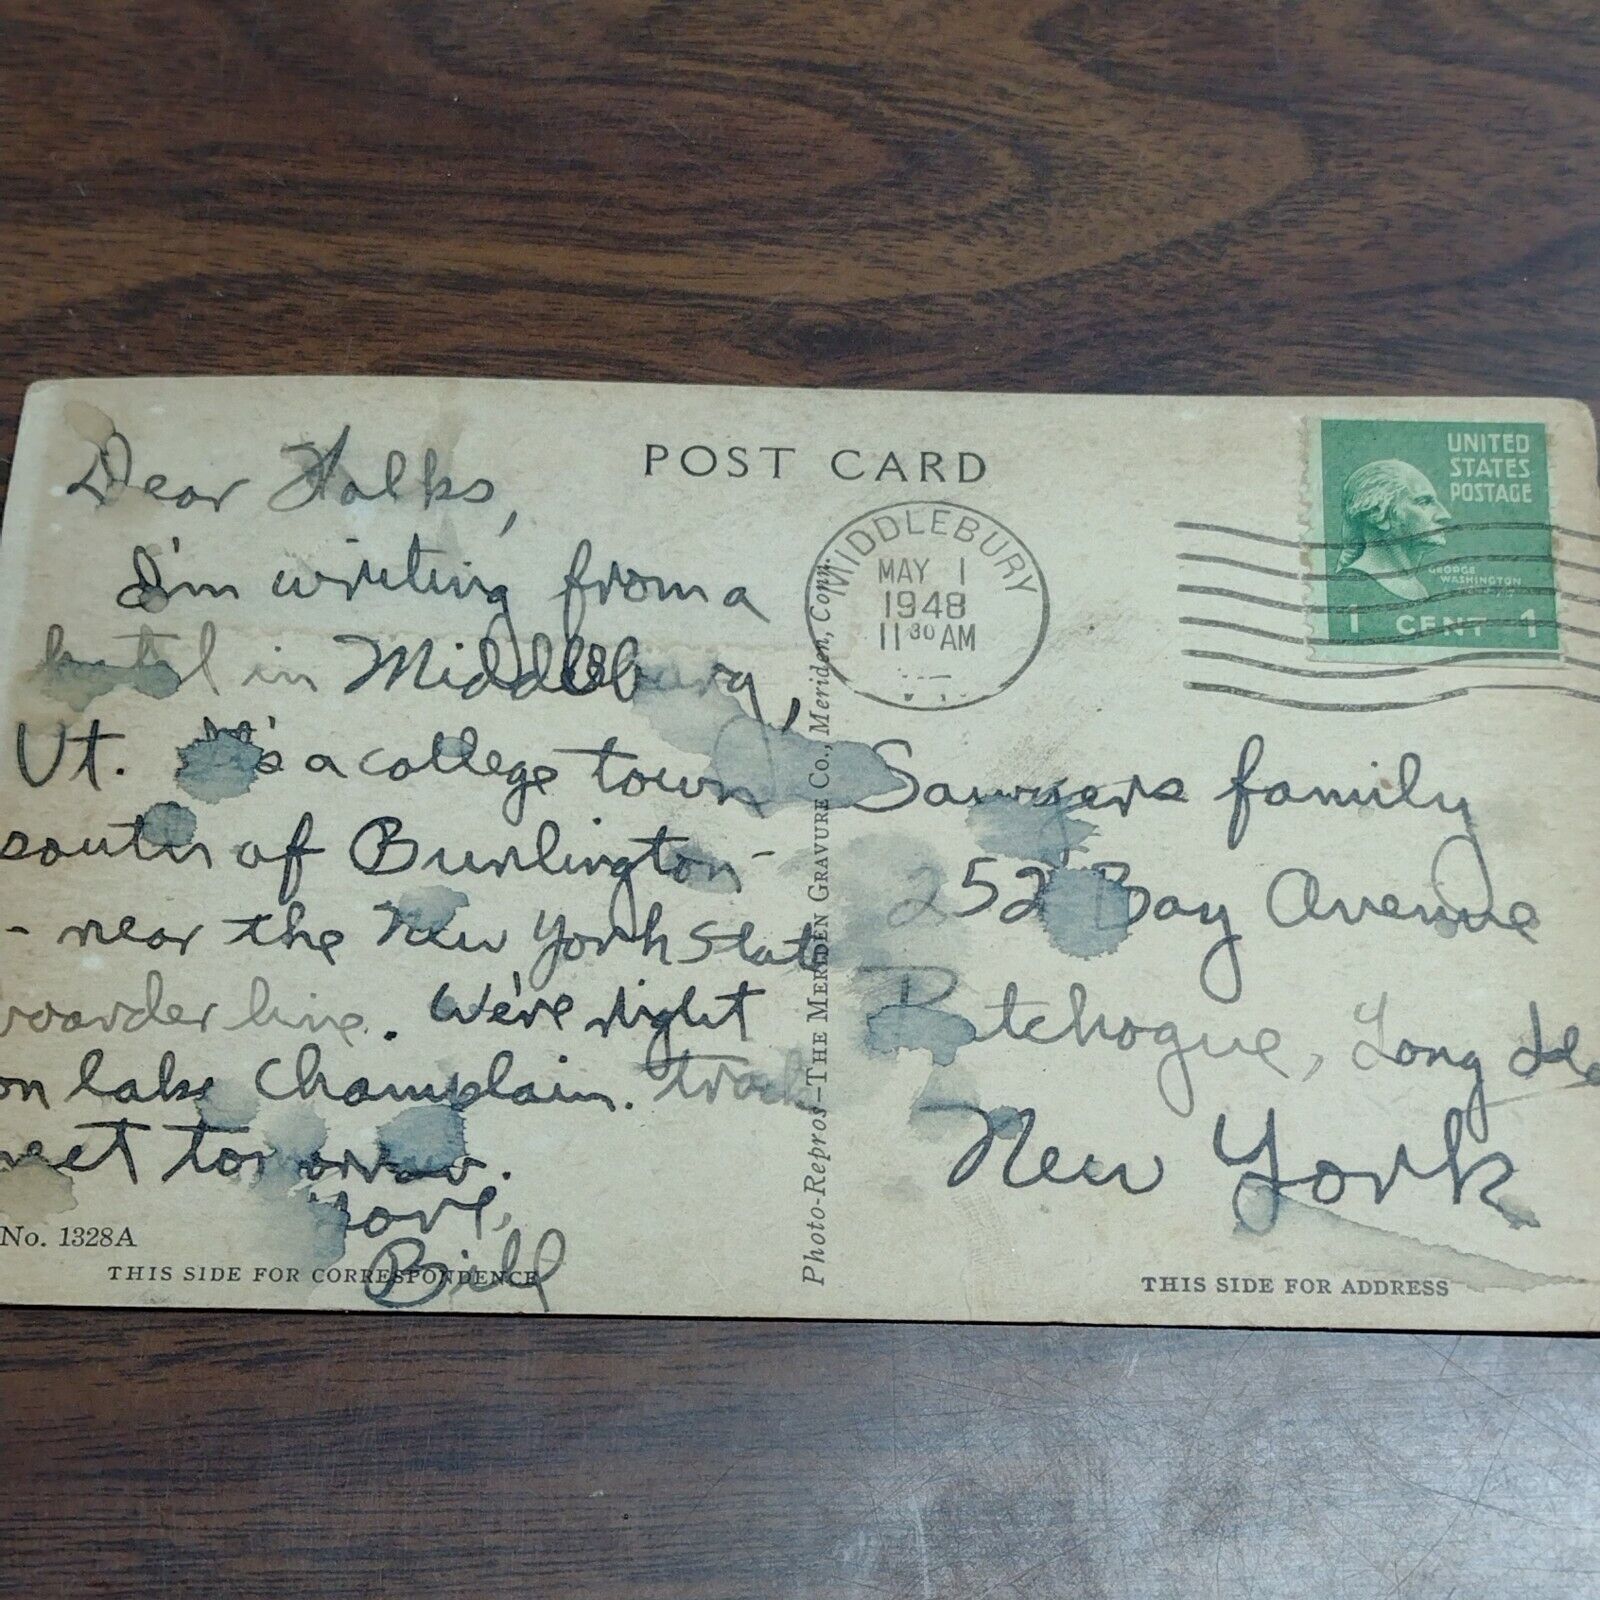 Dear Folks,
I'm writing from a
hotel in Middlebury,
Vt. It's a college town
south of Burlington-
- near the New York State
boarder line. We're right
on lake Champlain. track
meet tomorrow.
Love,
Bill
No. 1328A
THIS SIDE FOR CORRESPONDENCE
POST CARD
Photo-Repros—THE MERIDEN GRAVURE CO., Meriden, Conn.
MIDDLEBURY
MAY 1
1948
11 30 AM
UNITED
STATES
POSTAGE
GEORGE
WASHINGTON
1 CENT 1
Sawyers family
252 Bay Avenue
Patchogue, Long
New York
THIS SIDE FOR ADDRESS